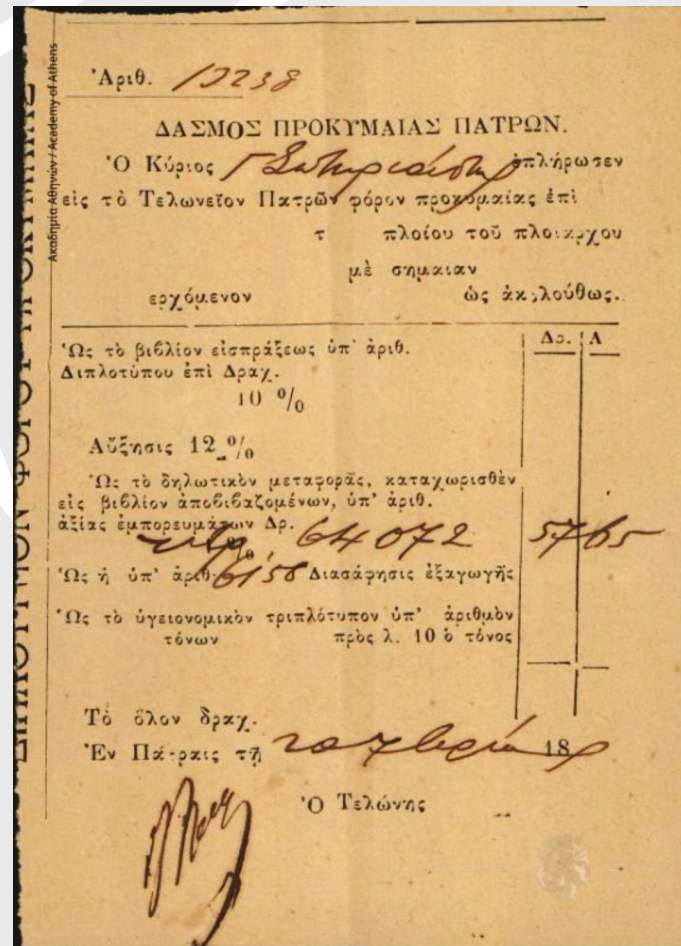 Ἀριθ. 12238
ΔΑΣΜΟΣ ΠΡΟΚΥΜΑΙΑΣ ΠΑΤΡΩΝ.
Ὁ Κύριος ἐπλήρωσεν
εἰς τὸ Τελωνεῖον Πατρῶν φόρον προκυμαίας ἐπὶ
τ πλοίου τοῦ πλοιάρχου
μὲ σημαιαν
ερχόμενον ὡς ἀκολούθως.
Δρ. Λ
Ὡς τὸ βιβλίον εἰσπράξεως ὑπ' ἀριθ.
Διπλοτύπου ἐπὶ Δραχ.
10 %
Αὔξησις 12 %
Ὡς τὸ δηλωτικὸν μεταφορᾶς, καταχωρισθὲν
εἰς βιβλίον ἀποβιβαζομένων, ὑπ' ἀριθ.
ἀξίας ἐμπορευμάτων Δρ.
64072 57 65
Ὡς ἡ ὑπ' ἀριθ. 6156 Διασάφησις ἐξαγωγῆς
Ὡς τὸ ὑγειονομικὸν τριπλότυπον ὑπ' ἀριθμὸν
τόνων πρὸς λ. 10 ὁ τόνος
Τὸ ὅλον δραχ.
Ἐν Πάτραις τῇ 20 7βρίου 18
Ὁ Τελώνης
Ακαδημία Αθηνών / Academy of Athens